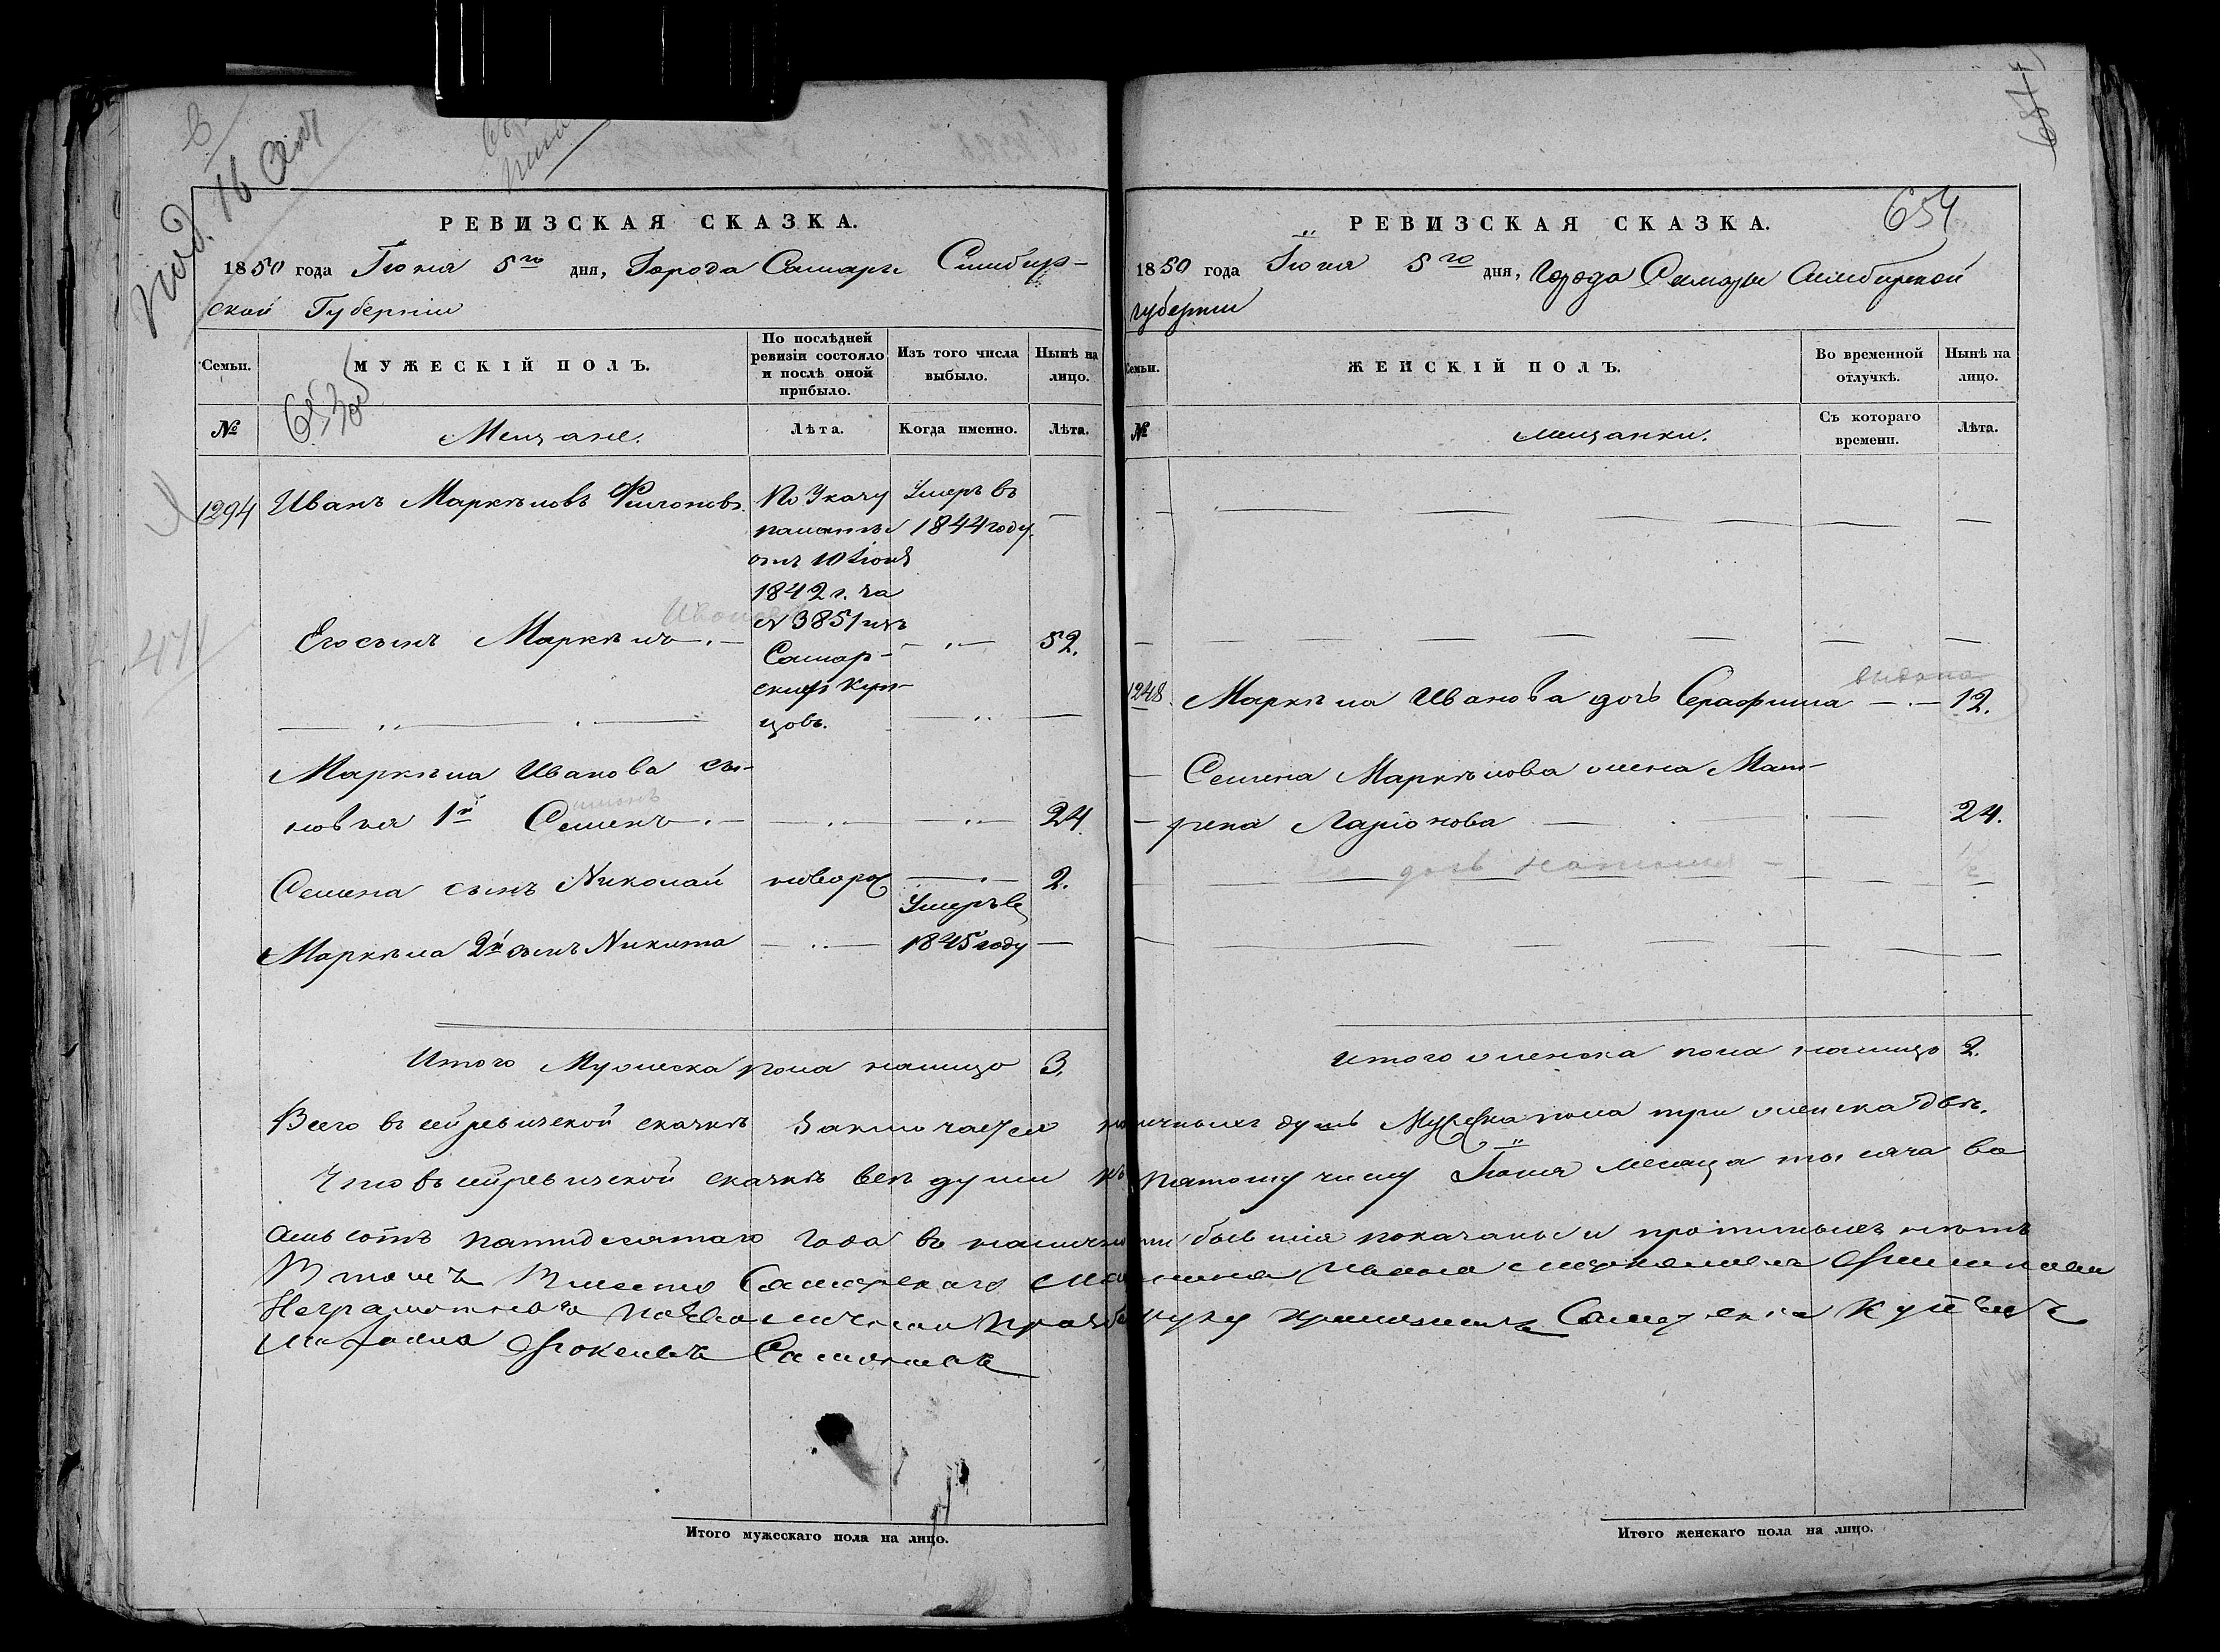 под. 16 Сен
РЕВИЗСКАЯ СКАЗКА.
1850 года Іюня 5го дня, Города Самары Симбир-
ской Губерніи
Семьи.
МУЖЕСКІЙ ПОЛЪ.
По послѣдней
ревизіи состояло
и послѣ оной
прибыло.
Изъ того числа
выбыло.
Нынѣ на
лицо.
653 об
№
Мещане.
Лѣта.
Когда именно.
Лѣта.
1294 Иванъ Маркѣловъ Филоновъ.
По Указу
палаты
отъ 10 Іюня
1842 г. за
№ 3851 изъ
Самар-
скихъ куп-
цовъ.
Умеръ въ
1844 году.
47
Его сынъ Маркѣлъ 52.
Маркѣла Иванова сы-
новья 1й Семенъ 24.
Семена сынъ Николай новорож 2.
Маркѣла 2й сынъ Никита
Умеръ въ
1845 году
Итого Мужеска пола налицо 3.
Итого мужескаго пола на лицо.
654
РЕВИЗСКАЯ СКАЗКА.
654
1850 года Іюня 5го дня, города Самары Симбирской
губерніи
Семьи.
ЖЕНСКІЙ ПОЛЪ.
Во временной
отлучкѣ.
Нынѣ на
лицо.
№
мещанки.
Съ котораго
времени.
Лѣта.
выдана
1248. Маркѣла Иванова дочь Серафима 12.
Семена Маркѣлова жена Мат-
рена Ларіонова 24.
дочь Наталия
Итого женска пола налицо 2.
Всего въ сей ревизской сказкѣ заключается наличныхъ душъ Мужеска пола три женска двѣ.
Что въ сей ревизской сказкѣ всѣ души къ пятому числу Іюня месяца тысяча во
семь сотъ пятидесятаго года въ наличности бывшія показаны и прописныхъ нѣтъ
В томъ Вместо Самарскаго
Неграмотнаго руку приложилъ Самарскій купецъ
Итого женскаго пола на лицо.